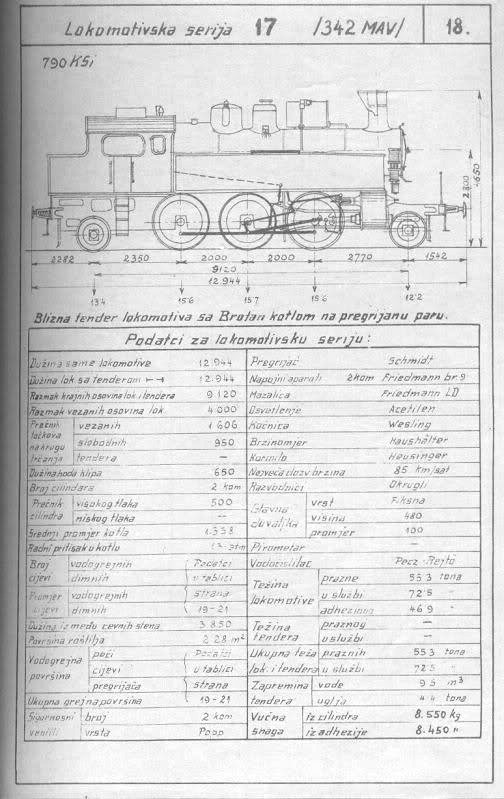 Lokomotivska serija 17 /342 MAV/ 18.
790 KSi
4650
2800
2282 2350 2000 2000 2770 1542
9120
12.944
13'4 15'6 15'7 15'6 12'2
Blizna tender lokomotiva sa Brotan kotlom na pregrijanu paru.
Podatci za lokomotivsku seriju:
Dužina same lokomotive 12.944 Pregrijač Schmidt
Dužina lok. sa tenderom 12.944 Napojni aparati 2 kom Friedmann br 9
Razmak krajnjih osovina lok. i tendera 9 120 Mazalica Friedmann LD
Razmak vezanih osovina lok. 4 000 Osvetlenje Acetilen
Prečnik točkova na krugu trčanja vezanih 1 606 Kočnica Wesling
slobodnih 950 Brzinomjer Haushälter
tendera — Kormilo Heusinger
Dužina hoda klipa 650 Najveća dozv. brzina 85 km/sat
Broj cilindara 2 kom Razvodnici Okrugli
Prečnik cilindra visokog tlaka 500 Glavna duvaljka vrst Fiksna
niskog tlaka — visina 480
Srednji promjer kotla promjer 100
Radni pritisak u kotlu Pirometar —
Broj cijevi vodogrejnih Podatci Vodočistilac Pecz-Rejtö
dimnih u tablici Težina lokomotive prazne 55 3 tona
Promjer cijevi vodogrejnih strana u službi 72 5 "
dimnih 19-21 adhezione 46 9 "
Dužina između cevnih stena 3 850 Težina tendera praznog —
Površina roštilja 2 28 m² u službi —
Vodogrejna površina peći Podatci Ukupna teža lok. i tendera praznih 55 3 tona
cijevi u tablici u službi 72 5 "
pregrijača strana Zapremina tendera vode 9 5 m³
Ukupna grejna površina 19-21 uglja 4 4 tona
Sigurnosni ventili broj 2 kom Vučna snaga iz cilindra 8.550 kg
vrsta Popp iz adhezije 8.450 "